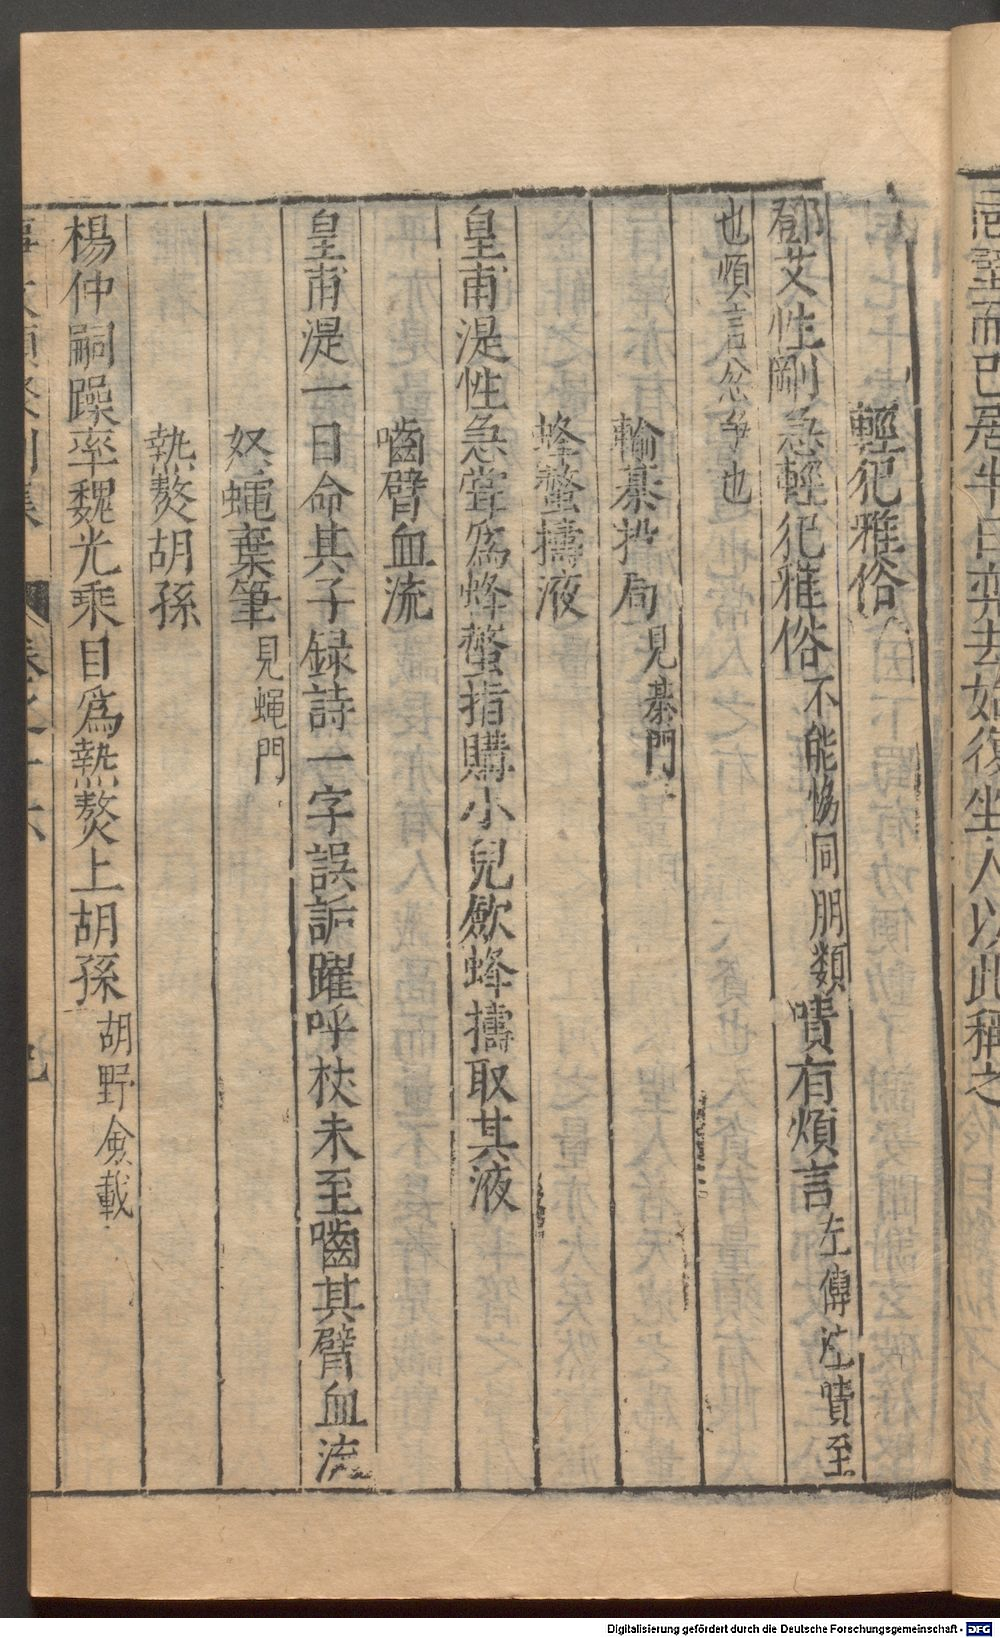 局墅而已居半日弈去始復坐人以此稱之
輕犯雅俗
鄧艾性剛急輕犯雅俗不能恊同朋類嘖有煩言左傳注嘖至
也煩言忿争也
輸棊投局見棊門
蜂螫擣液
皇甫湜性急嘗爲蜂螫指購小兒歛蜂擣取其液
嚙臂血流
皇甫湜一日命其子録詩一字誤詬躍呼杖未至嚙其臂血流
怒蠅棄筆見蝇門
熱熬胡孫
楊仲嗣躁率魏光乘目爲熱熬上胡孫胡野僉載
事文類聚別集 卷之十六 九
Digitalisierung gefördert durch die Deutsche Forschungsgemeinschaft - DFG